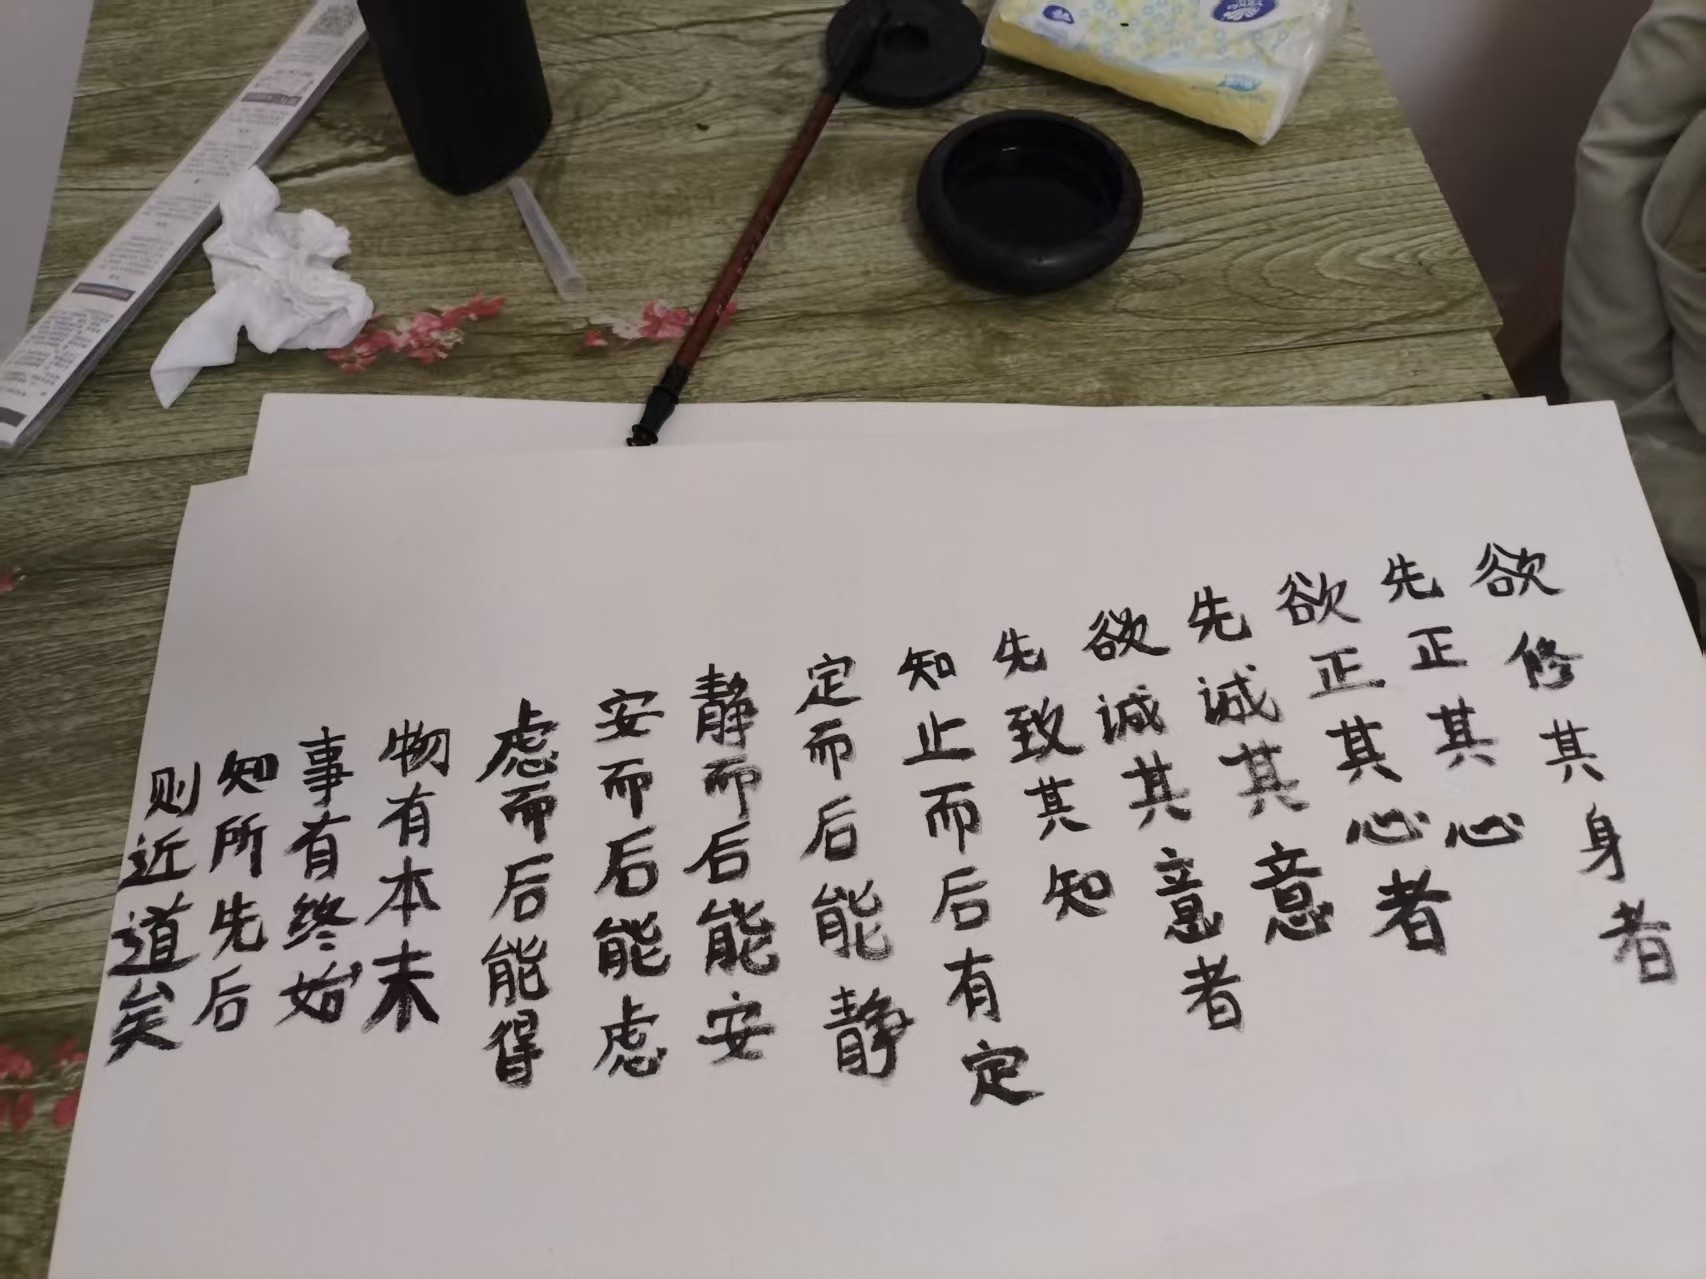 欲修其身者
先正其心
欲正其心者
先诚其意
欲诚其意者
先致其知
知止而后有定
定而后能静
静而后能安
安而后能虑
虑而后能得
物有本末
事有终始
知所先后
则近道矣